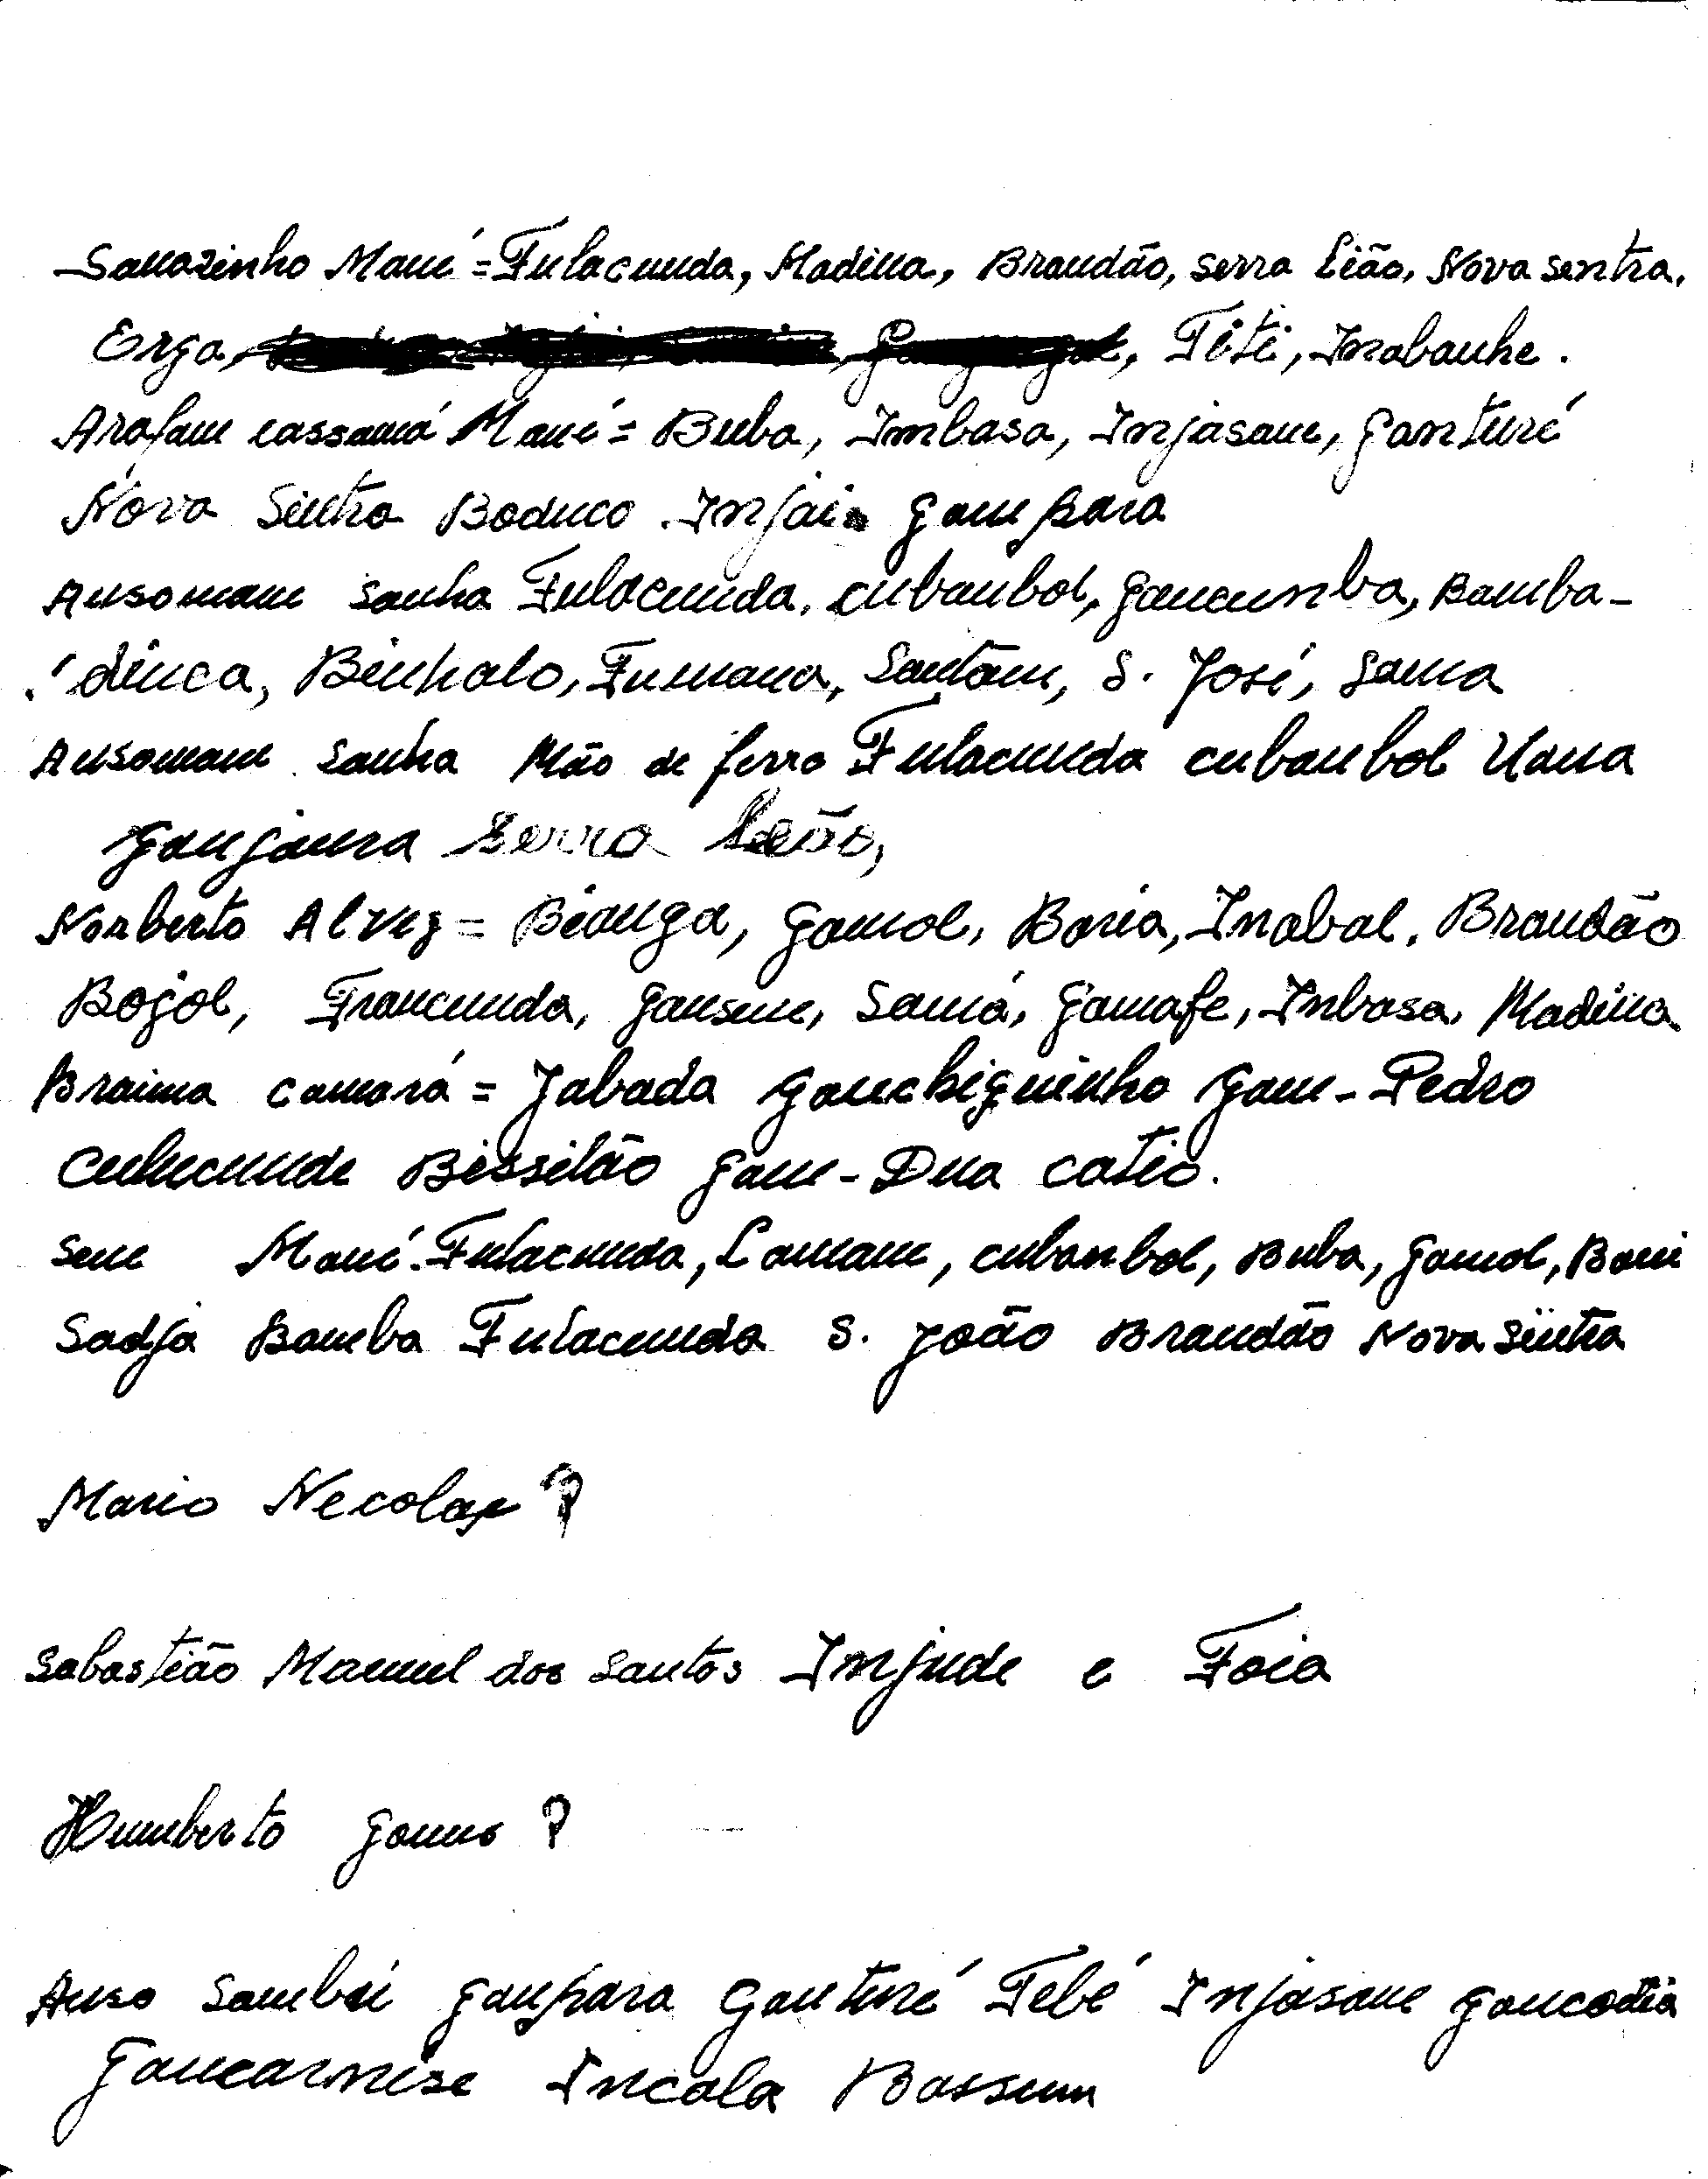 Sanazinho Mané = Fulacunda, Madina, Brandão, serra Lião, Nova sentra.
Enga, Titi, Inabanhe.
Arafam cassamá Mané = Buba, Imbasa, Injasane, ganturé
Nova Sintra Boduco Injai ganpara
Ansomane sanha Fulacunda, cubanbol, gancumba, Bamba-
dinca, Binhalo, Fumana, Santam, S. José, Sama
Ansomane sanha Mão de ferro Fulacunda cubanbol Uana
ganjaura Serra Leão,
Norberto Alvez = Bianga, gamol, Baria, Inabal, Brandão
Bojol, Francunda, gansene, Samá, gamafe, Inbasa, Madina
Braima camará = Jabada ganchiquinho gam-Pedro
Bissilão gam-Dua catió.
sene Mané Fulacunda, Lamane, cubanbol, Buba, gamol, Bani
Sadja Bamba Fulacunda S. João Brandão Nova Sintra
Mario Necolae ?
Sabastião Manuel dos Santos Injude e Foia
Humberto gomes ?
Anso Sambú ganpara Ganturé Tebé Injasane gancodia
gancarnise Incala Bassum